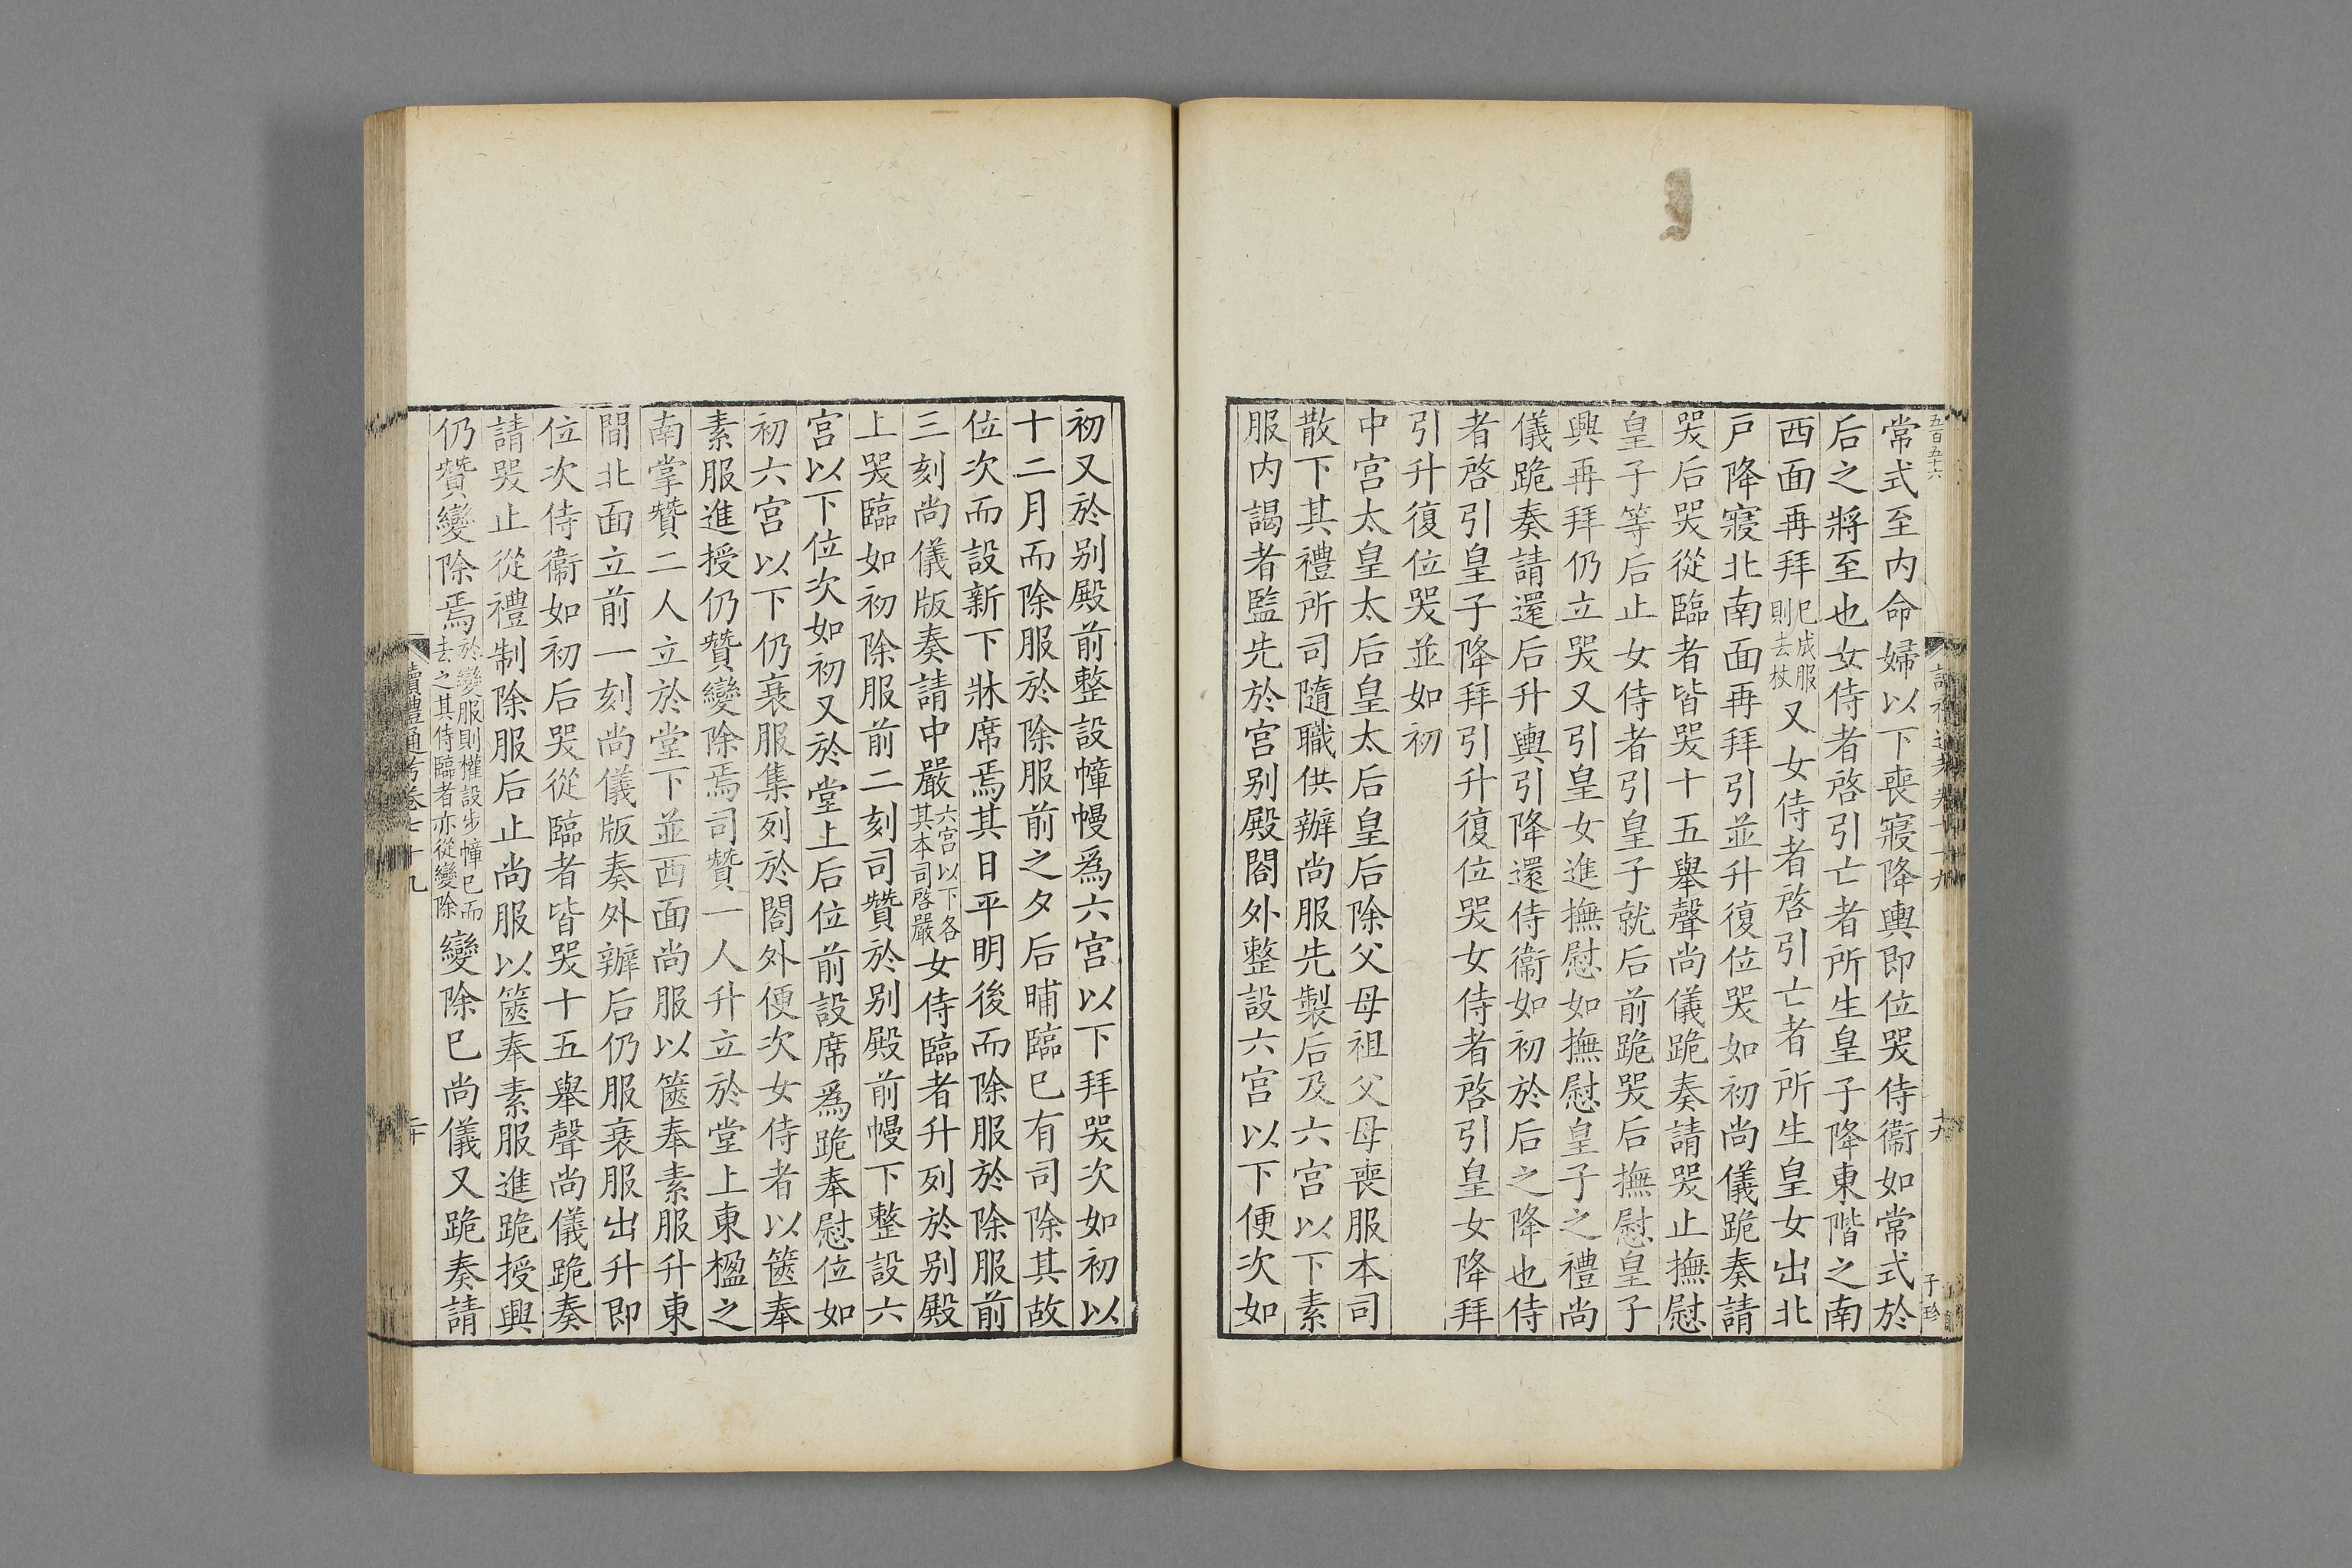 五百五十六
常式至内命婦以下喪寢降輿即位哭侍衞如常式於
后之將至也女侍者啓引亡者所生皇子降東階之南
西面再拜已成服則去杖又女侍者啓引亡者所生皇女出北
戸降寢北南面再拜引並升復位哭如初尚儀跪奏請
哭后哭從臨者皆哭十五舉聲尚儀跪奏請哭止撫慰
皇子等后止女侍者引皇子就后前跪哭后撫慰皇子
興再拜仍立哭又引皇女進撫慰如撫慰皇子之禮尚
儀跪奏請還后升輿引降還侍衞如初於后之降也侍
者啓引皇子降拜引升復位哭女侍者啓引皇女降拜
引升復位哭並如初
中宫太皇太后皇太后皇后除父母祖父母喪服本司
散下其禮所司隨職供辦尚服先製后及六宫以下素
服内謁者監先於宫别殿閤外整設六宫以下便次如
十九
子珍
初又於别殿前整設幛幔爲六宫以下拜哭次如初以
十二月而除服於除服前之夕后晡臨已有司除其故
位次而設新下牀席焉其日平明後而除服於除服前
三刻尚儀版奏請中嚴六宫以下各其本司啓嚴女侍臨者升列於别殿
上哭臨如初除服前二刻司贊於别殿前幔下整設六
宫以下位次如初又於堂上后位前設席爲跪奉慰位如
初六宫以下仍衰服集列於閤外便次女侍者以篋奉
素服進授仍贊變除焉司贊一人升立於堂上東楹之
南掌贊二人立於堂下並西面尚服以篋奉素服升東
間北面立前一刻尚儀版奏外辦后仍服衰服出升即
位次侍衞如初后哭從臨者皆哭十五舉聲尚儀跪奏
請哭止從禮制除服后止尚服以篋奉素服進跪授興
仍贊變除焉於變服則權設步幛已而去之其侍臨者亦從變除變除已尚儀又跪奏請
讀禮通考卷七十九
二十